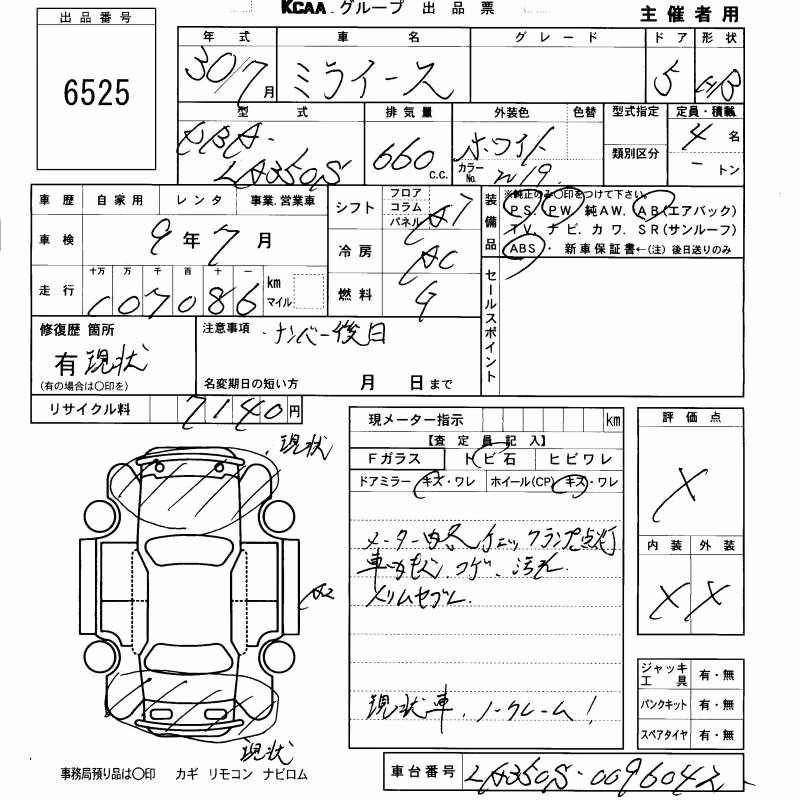 KCAA.グループ 出品票 主催者用
出品番号
6525
年式 車名 グレード ドア 形状
30/7月 ミライース 5 HB
型式 排気量 外装色 色替 型式指定 定員・積載
DBA- LA350S 660 c.c. ホワイト カラーNo. W19 類別区分 4名
ートン
車歴 自家用 レンタ 事業.営業車
車検 9年7月
走行 十万 万 千 百 十 一 km マイル
107086
シフト フロア コラム パネル A7
冷房 AC
燃料 G
装備品 ※純正のみ〇印をつけて下さい。
PS. PW. 純AW. AB(エアバック)
TV. ナビ. カワ. SR(サンルーフ)
ABS・ 新車保証書←(注) 後日送りのみ
セールスポイント
修復歴 箇所
有 現状
(有の場合は〇印を)
注意事項 ・ナンバー後日
名変期日の短い方 月 日まで
リサイクル料 7140円
現メーター指示 km
【査定員記入】
Fガラス トビ石 ヒビワレ
ドアミラー キズ・ワレ ホイール(CP) キズ・ワレ
メーター内各 チェックランプ点灯
コゲ、汚れ.
現状車.ノークレーム!
評価点
X
内装 外装
X X
現状
A2
現状
ジャッキ工具 有・無
パンクキット 有・無
スペアタイヤ 有・無
事務局預り品は〇印 カギ リモコン ナビロム
車台番号 LA350S-0096042